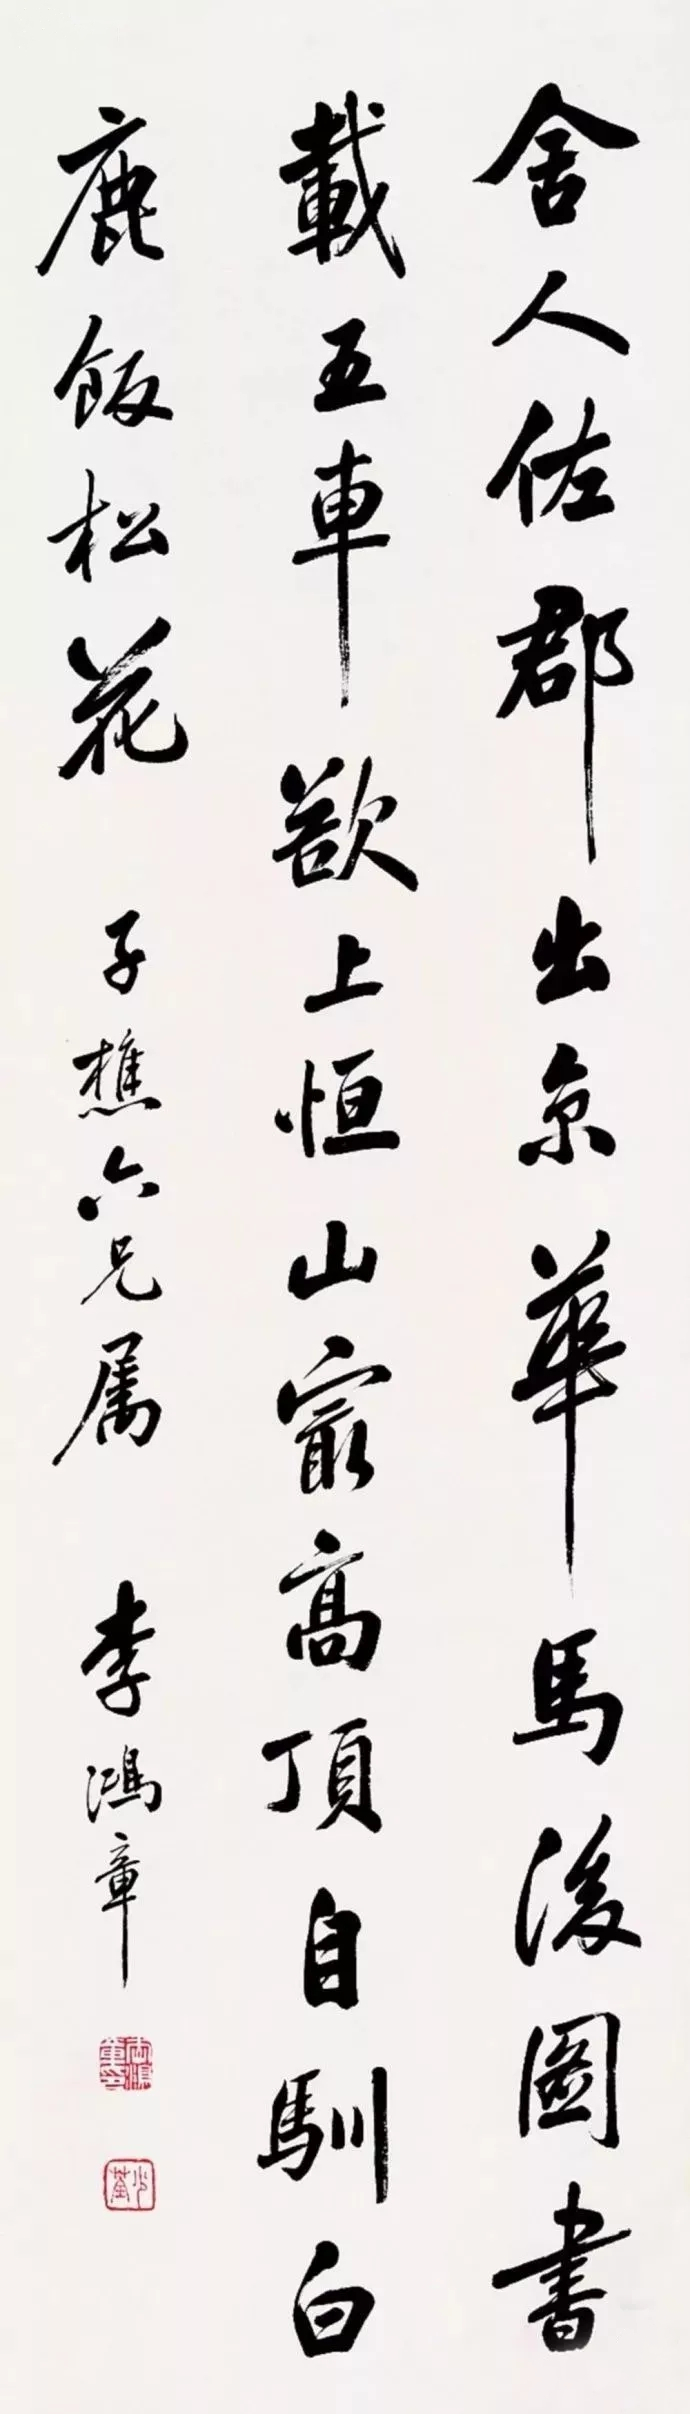 舍人佐郡出京華馬後圖書
載五車欲上恒山最高頂自馴白
鹿飯松花 子樵六兄属 李鴻章
少荃